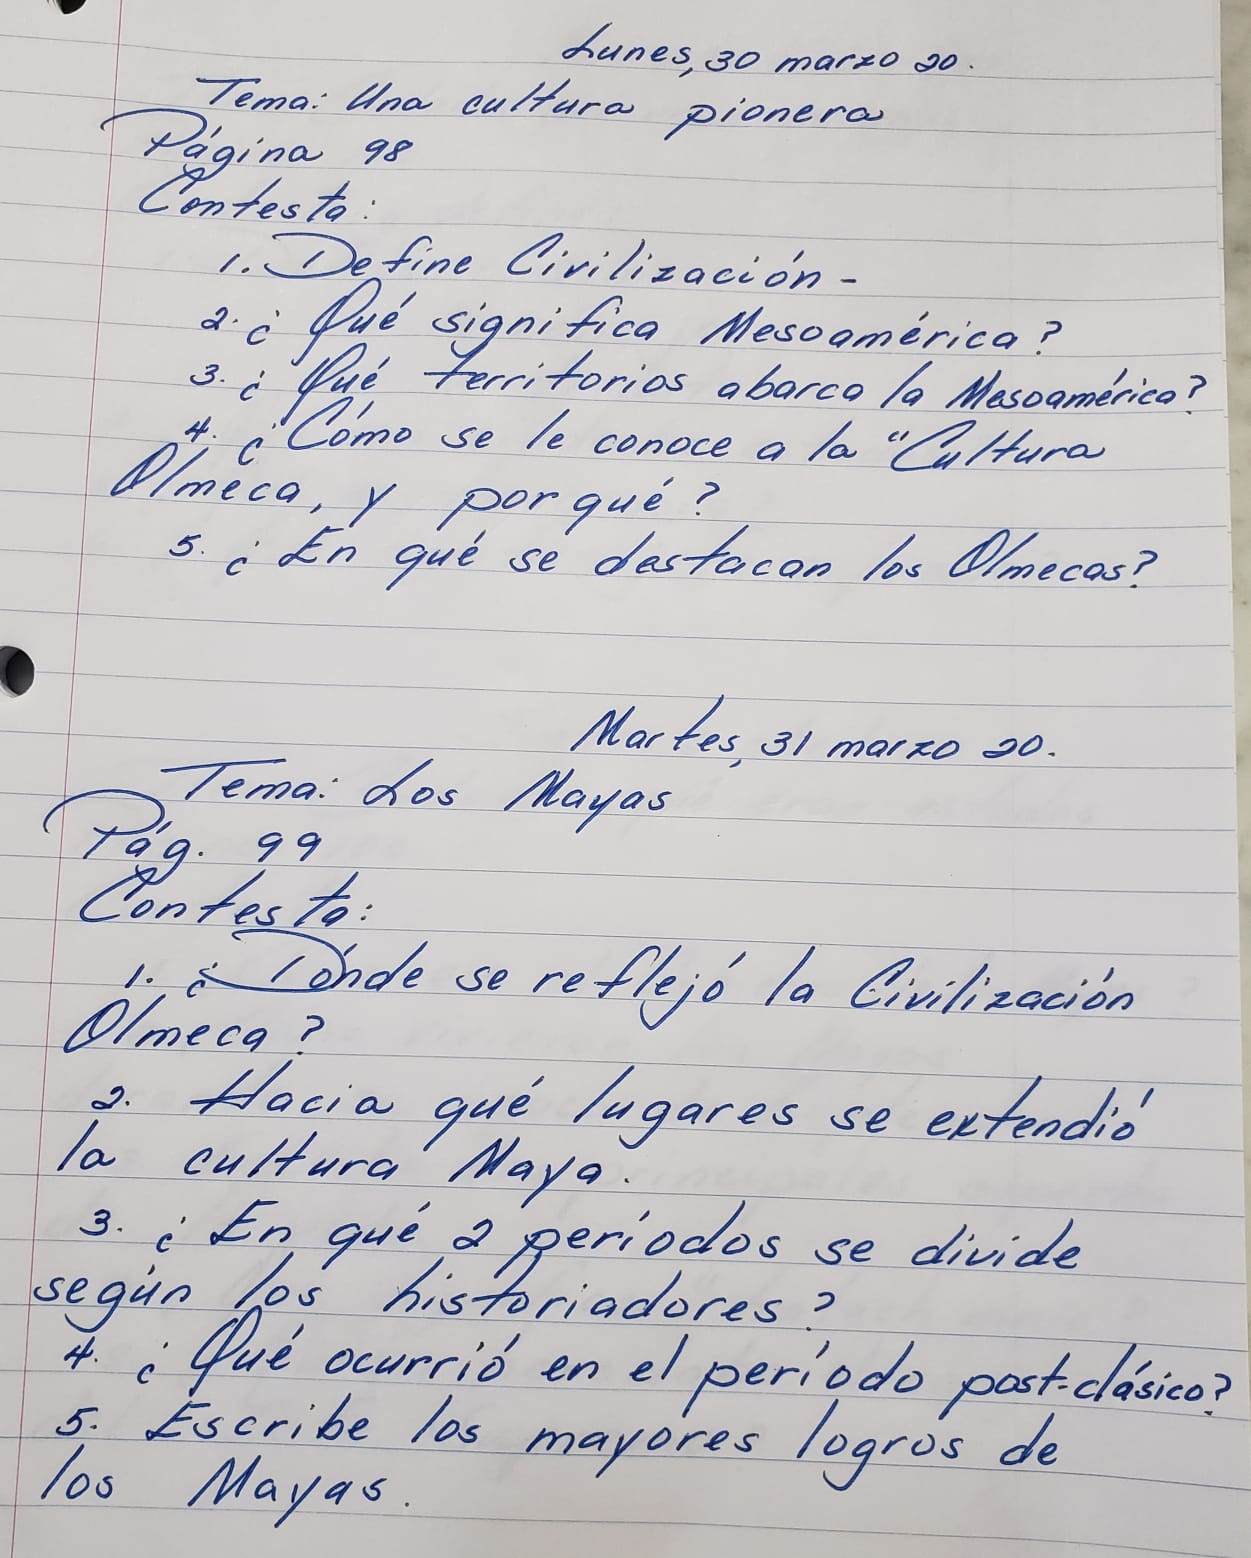 Lunes, 30 marzo 20.
Tema: Una cultura pionera
Página 98
Contesta:
1. Define Civilización-
2. ¿Qué significa Mesoamérica?
3. ¿Qué territorios abarca la Mesoamérica?
4. ¿Cómo se le conoce a la "Cultura
Olmeca, y por qué?
5. ¿En qué se destacan los Olmecas?
Martes, 31 marzo 20.
Tema: Los Mayas
Pág. 99
Contesta:
1. ¿Dónde se reflejó la Civilización
Olmeca?
2. Hacia qué lugares se extendió
la cultura Maya.
3. ¿En qué 2 períodos se divide
según los historiadores?
4. ¿Qué ocurrió en el período post-clásico?
5. Escribe los mayores logros de
los Mayas.